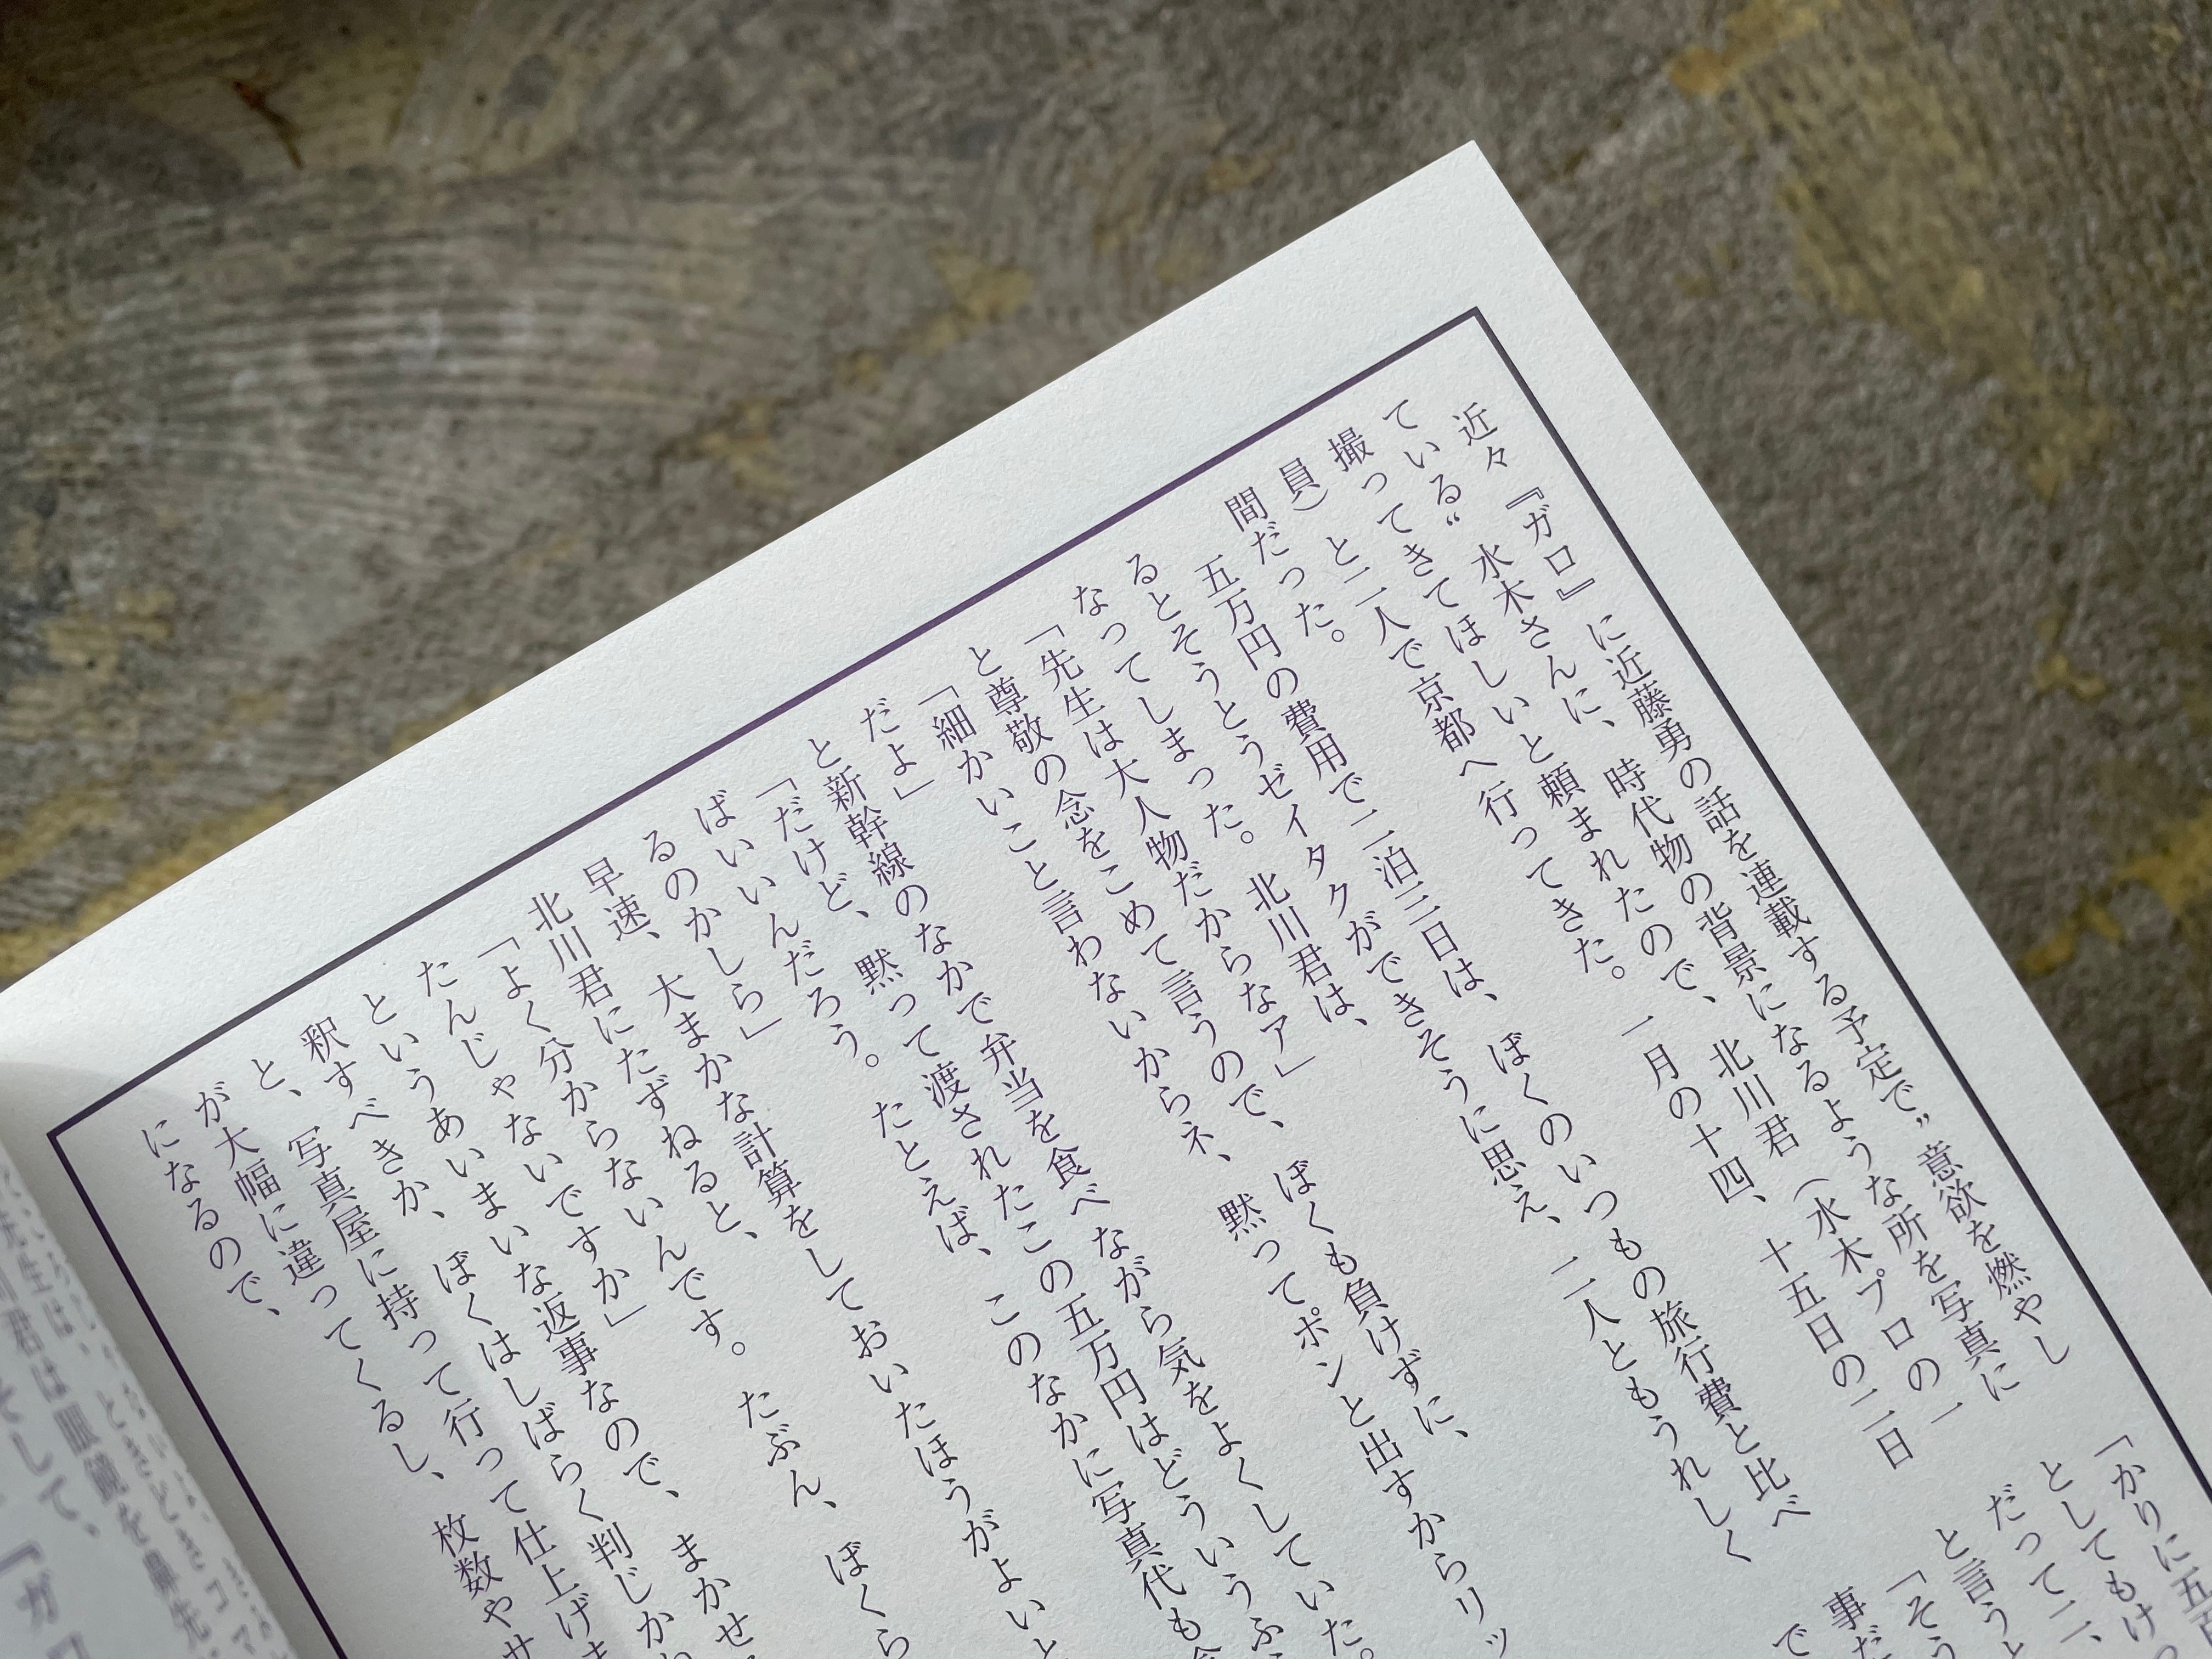 近々『ガロ』に近藤勇の話を連載する予定で”意欲を燃やし
ている“水木さんに、時代物の背景になるような所を写真に
撮ってきてほしいと頼まれたので、北川君（水木プロの一
員）と二人で京都へ行ってきた。一月の十四、十五日の二日
間だった。
五万円の費用で二泊三日は、ぼくのいつもの旅行費と比べ
るとそうとうゼイタクができそうに思え、二人ともうれしく
なってしまった。北川君は、
「先生は大人物だからなア」
と尊敬の念をこめて言うので、ぼくも負けずに、
「細かいこと言わないからネ、黙ってポンと出すからリッ
だよ」
と新幹線のなかで弁当を食べながら気をよくしていた。
「だけど、黙って渡されたこの五万円はどういうふ
ばいいんだろう。たとえば、このなかに写真代も
るのかしら」
早速、大まかな計算をしておいたほうがよいと
北川君にたずねると、
「よく分からないんです。たぶん、ぼくら
たんじゃないですか」
というあいまいな返事なので、まかせ
釈すべきか、ぼくはしばらく判じかね
と、写真屋に持って行って仕上げま
が大幅に違ってくるし、枚数やサ
になるので、
「かりに五百
としてもけっ
だって二、
と言うと
「そう
事だ
で